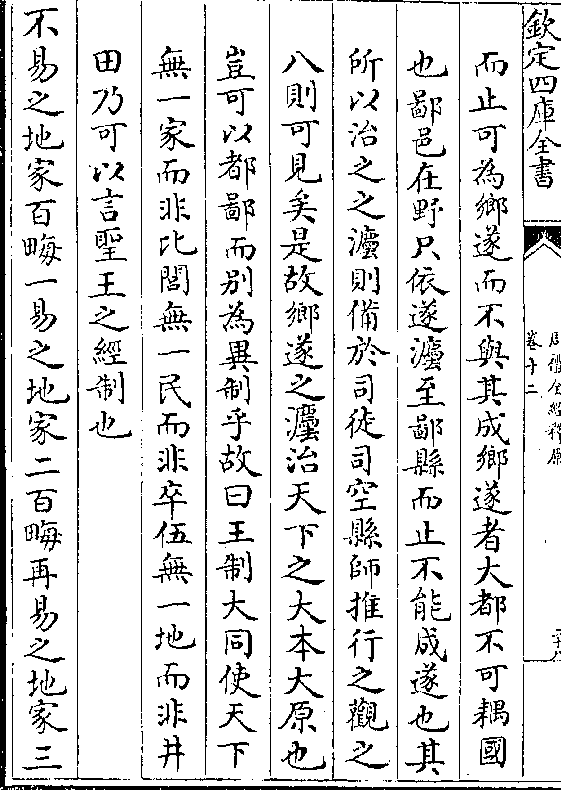 欽定四庫全書
周禮全經釋原
卷十二
而止可為鄉遂而不與其成鄉遂者大都不可耦國
也鄙邑在野只依遂灋至鄙縣而止不能成遂也其
所以治之之灋則備於司徒司空縣師推行之觀之
八則可見矣是故鄉遂之灋治天下之大本大原也
豈可以都鄙而别為異制乎故曰王制大同使天下
無一家而非比閭無一民而非卒伍無一地而非井
田乃可以言聖王之經制也
不易之地家百畮一易之地家二百畮再易之地家三